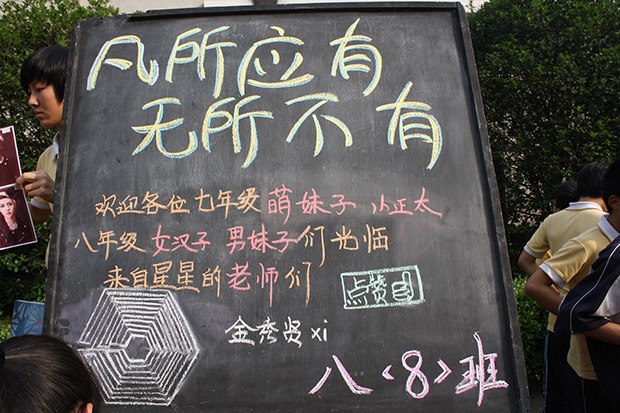 凡所应有
无所不有
欢迎各位七年级萌妹子 小正太
八年级女汉子 男妹子们光临
来自星星的老师们
点赞
金秀贤xi
八〈8〉班